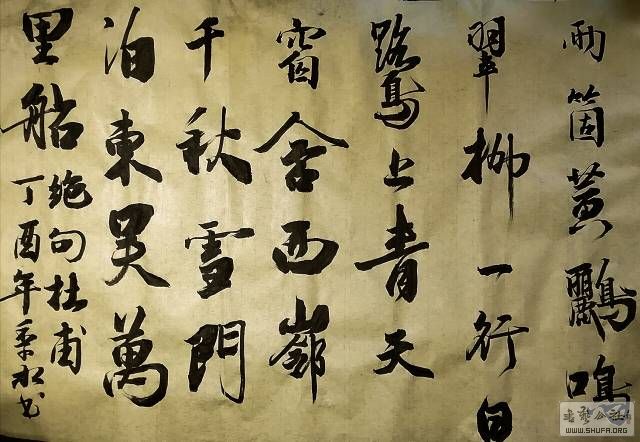 兩箇黃鸝鳴
翠柳一行白
鷺上青天
窗含西嶺
千秋雪門
泊東吳萬
里船
絶句杜甫
丁酉年 书
書藝公社
WWW.SHUFA.ORG